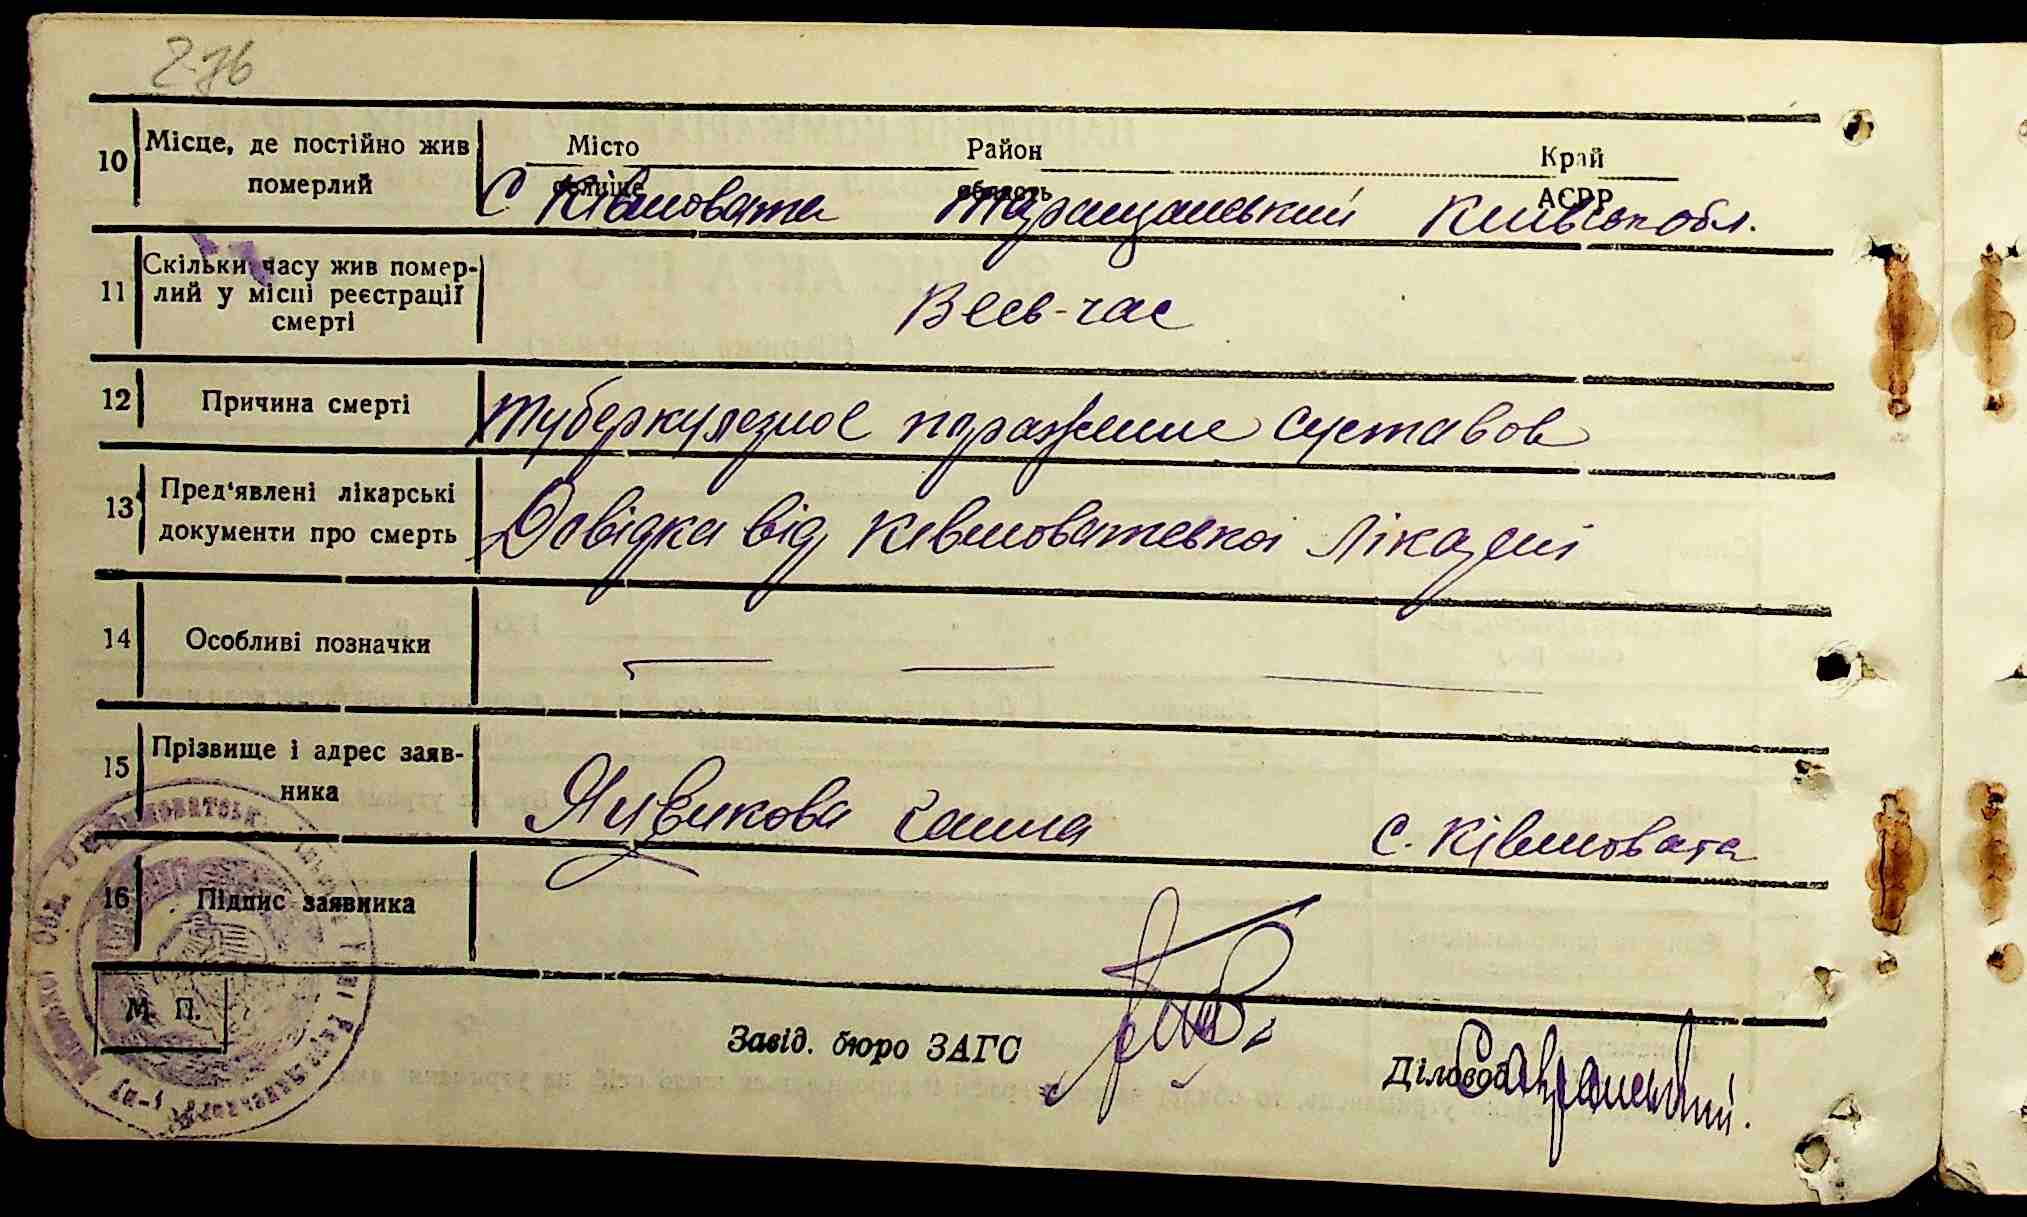 2-76
10 Місце, де постійно жив померлий
Місто Район Край
селище область АСРР
С Ківшовата Таращанський Київськ обл.
11 Скільки часу жив помер-
лий у місці реєстрації
смерті
Весь-час
12 Причина смерті
туберкулезное поражение суставов
13 Пред'явлені лікарські
документи про смерть
Довідка від Ківшоватської лікарні
14 Особливі позначки
— — —
15 Прізвище і адрес заяв-
ника
Ганна с. Ківшовата
16 Підпис заявника
М. П.
Завід. бюро ЗАГС
Діловод